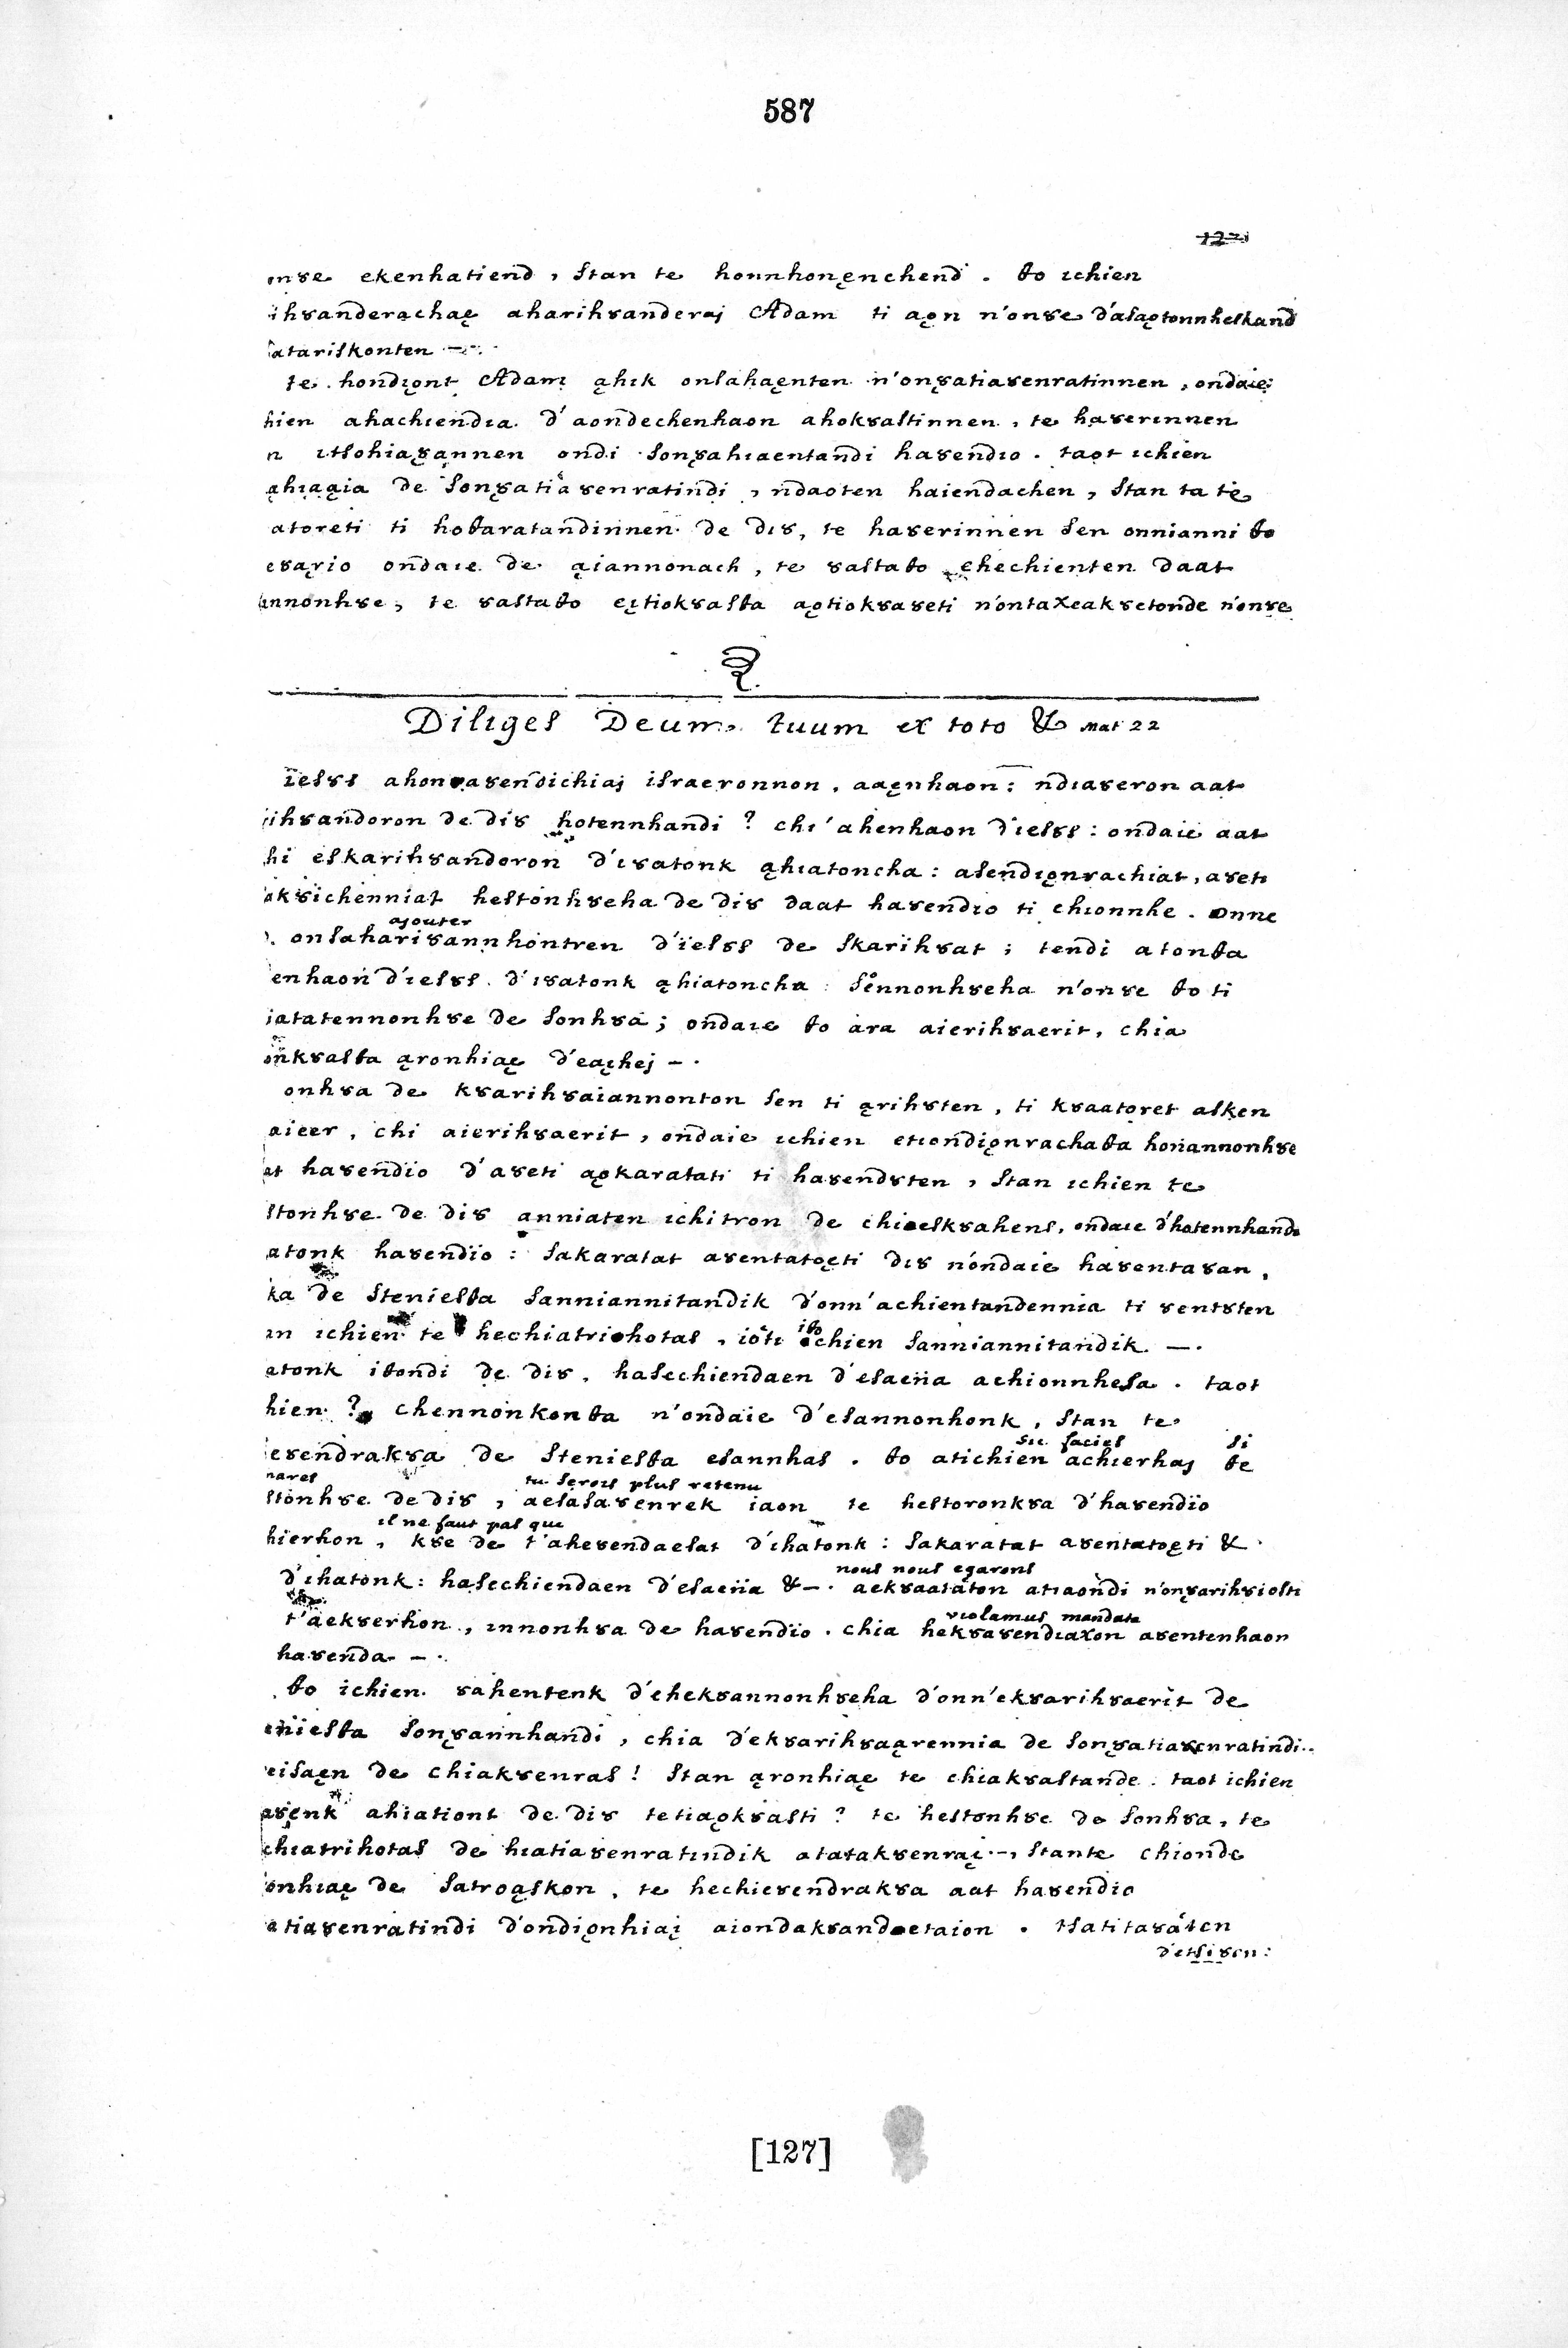 587
127
onȣe ekenhatiend, stan te honnhonęnchend. ꝋo ichien
ihȣanderąchaę aharihȣanderaj Adam ti aǫn n'onȣe d'asaǫtonnheskand
atariskonten —
te hondiǫnt Adam ąhik onsahaęnten n'onȣ̨atiaȣenratinnen, ondaie
hien ahachiendia d'aondechenhaon ahokȣastinnen, te haȣerinnen
n itsohiaȣ̨annen ondi sonȣ̨ahiaentandi haȣendio. taot ichien
ąhiaąia de sonȣ̨atiaȣenratindi, ndaoten haiendachen, stan ta te
atoreti ti hoꝋaratandinnen de diȣ, te haȣerinnen sen onnianni ꝋo
eȣąrio ondaie de ąiannonach, te ȣastaꝋo ehechienten daat
annonhȣe, te ȣastaꝋo eįtiokȣasꝋa aǫtiokȣaȣeti n'ontaxeakȣetonde n'onȣe
Diliges Deum tuum ex toto & Mat 22
iesȣs ahonȣaȣendichiaj israeronnon, aaęnhaon: ndiaȣeron aat
ihȣandoron de diȣ hotennhandi? chi'ahenhaon d'iesȣs: ondaie aat
hi eskarihȣandoron d'iȣatonk ąhiatoncha: asendiǫnrachiat, aȣeti
akȣichenniat hestonhȣeha de diȣ daat haȣendio ti chionnhe. onne
ajouter
onsahariȣannhontren d'iesȣs de skarihȣat; tendi atonꝋa
enhaon d'iesȣs d'iȣatonk ąhiatoncha: sennonhȣeha n'onȣe ꝋo ti
iatatennonhȣe de sonhȣa; ondaie ꝋo ara aierihȣaerit, chia
onkȣasꝋa ąronhiaę d'eaįhej —.
onhȣa de kȣarihȣaiannonton sen ti ąrihȣten, ti kȣaatoret asken
aieer, chi aierihȣaerit, ondaie ichien etiondiǫnrachaꝋa honannonhȣe
at haȣendio d'aȣeti aǫkaratati ti haȣendȣten, stan ichien te
stonhȣe de diȣ anniaten ichitron de chieskȣahens, ondaie d'hotennhandi
atonk haȣendio: sakaratat aȣentatoęti diȣ n'ondaie haȣentaȣan,
ka de steniesꝋa sanniannitandik d'onn'achientandennia ti ȣentȣten
an ichien te hechiatrihotas, ioti iꝋo chien sanniannitandik —.
atonk iꝋondi de diȣ, hasechiendaen d'esaeña achionnhesa. taot
hien? chennonkonꝋa n'ondaie d'esannonhonk, stan te
sic facies si
eȣendrakȣa de steniesꝋa esannhas. ꝋo atichien achierhaj ꝋe
nares tu serois plus retenu
stonhȣe de diȣ, aesasaȣenrek iaon te hestoronkȣa d'haȣendio
il ne faut pas que
hierhon, kȣe de t'aheȣendaesat d'ihatonk: sakaratat aȣentatoęti &.
nous nous egarons
d'ihatonk: hasechiendaen d'esaeña &—. aekȣaataton atiaondi n'onȣ̨arihȣiosti
violamus mandata
t'aekȣerhon, innonhȣa de haȣendio. chia hekȣaȣendiaxon aȣentenhaon
haȣenda —.
ꝋo ichien ȣahentenk d'ehekȣannonhȣeha d'onn'ekȣarihȣaerit de
eniesꝋa sonȣ̨annhandi, chia d'ekȣarihȣaąrennia de sonȣ̨atiaȣenratindi..
eisaęn de chiakȣenras! stan ąronhiaę te chiakȣastande. taot ichien
aȣenk ahiationt de diȣ tetiaǫkȣasti? te hestonhȣe de sonhȣa, te
chiatrihotas de hiatiaȣenratindik atatakȣenraį —, stante chionde
onhiaę de satroąskon, te hechieȣendrakȣa aat haȣendio
atiaȣenratindi d'ondiǫnhiaį aiondakȣandetaion. tsatitaȣaten
d'etsiȣen:
[127]